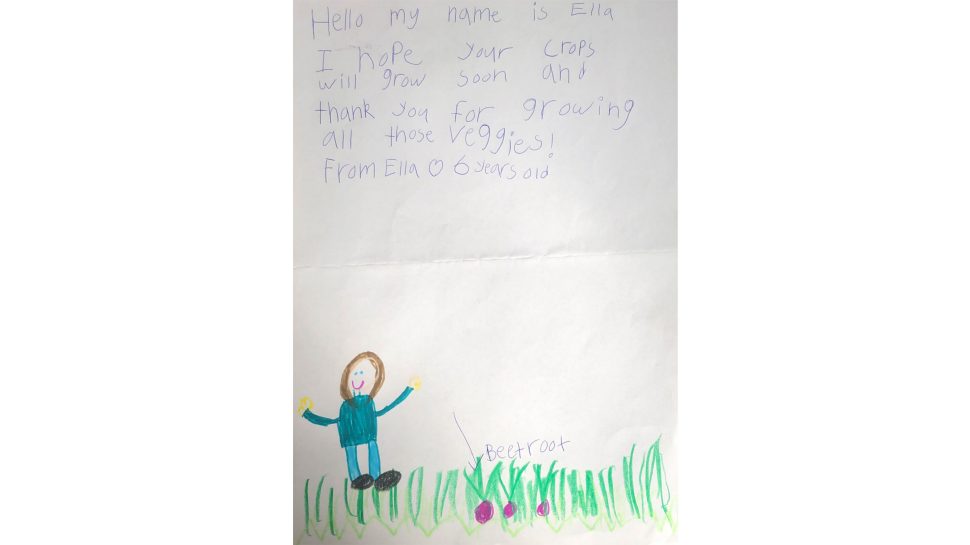 Hello my name is Ella
I hope your crops
will grow soon and
thank you for growing
all those veggies!
From Ella ♡ 6 years old
Beetroot